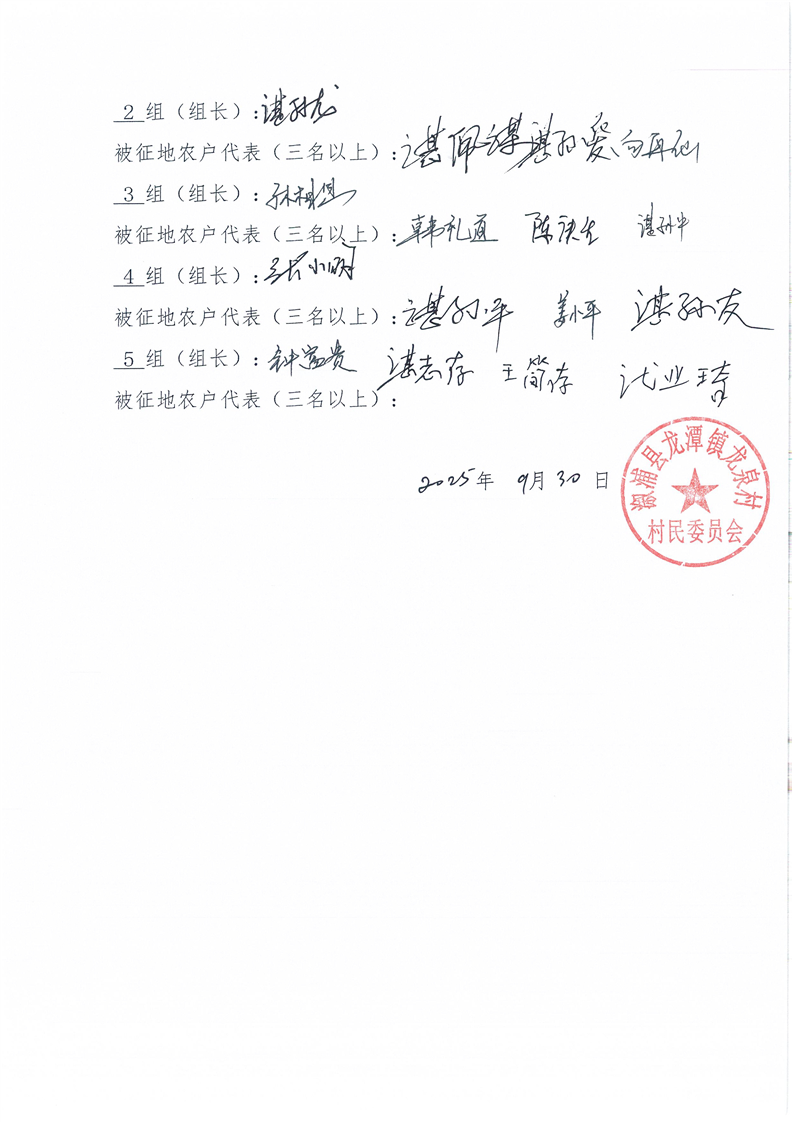 2组（组长）：谌孙龙
被征地农户代表（三名以上）：谌佩谋 谌孙爱、向再仙
3组（组长）：
被征地农户代表（三名以上）：韩礼道 陈 谌孙中
4组（组长）：张小明
被征地农户代表（三名以上）：谌孙平 姜小平 谌孙友
5组（组长）：钟富贵 谌志存 王简存
被征地农户代表（三名以上）：
2025年 9月30日
溆浦县龙潭镇龙泉村
村民委员会